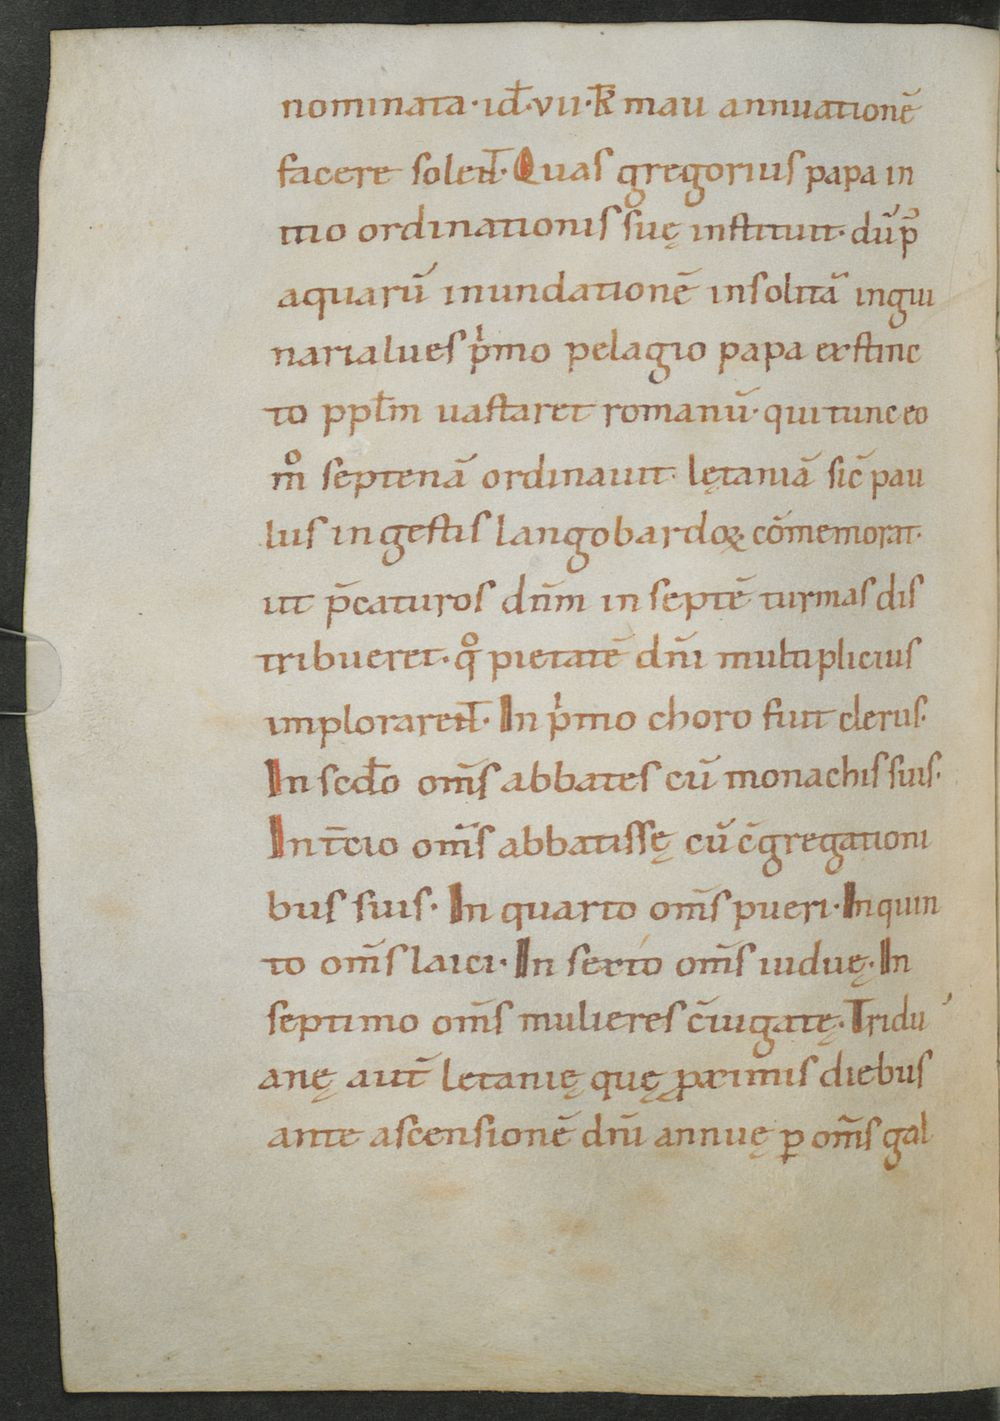 nominata · id̄ · vii · k̄ maii annuationē
facere solent̄ · Quas gregorius papa in
itio ordinationis suę instituit · dū p̄
aquarū inundationē insolitā ingui
narialues pͥmo pelagio papa extinc
to pplm̄ uastaret romanū · qui tunc eo
mͦ septenā ordinauit · lętaniā sic̄ pau
lus in gestis langobardoꝝ cōmemorat ·
ut p̄caturos dn̄m in septē turmas dis
tribueret · qͦ pietatē dn̄i multiplicius
implorarent̄ · In pͥmo choro fuit clerus ·
In scd̄o om̄s abbates cū monachis suis ·
In t̄cio om̄s abbatissę cū c̄gregationi
bus suis · In quarto om̄s pueri · In quin
to om̄s laici · In sexto om̄s uiduę · In
septimo om̄s mulieres c̄iugatę · Tridu
anę aut̄ letanię quę ꝓximis diebus
ante ascensionē dn̄i annuę ꝑ om̄s gal